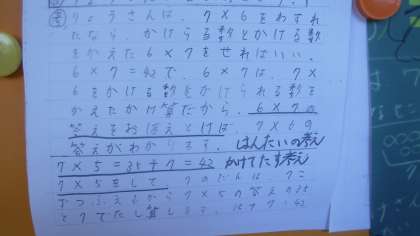 考 りょうさんは、7×6をわすれ
たなら、かけられる数とかける数
をかえた6×7をせればいい。
6×7=42で、6×7は、7×
6をかける数をかけられる数を
かえたかけ算だから、6×7の
答えをおぼえとけば、7×6の
答えがわかります。はんたいの考え
7×5=35+7=42 かけてたす考え
7×5をして 7のだんは、7こ
ずつふえるから7×5の答えの35
と7でたし算します。 42